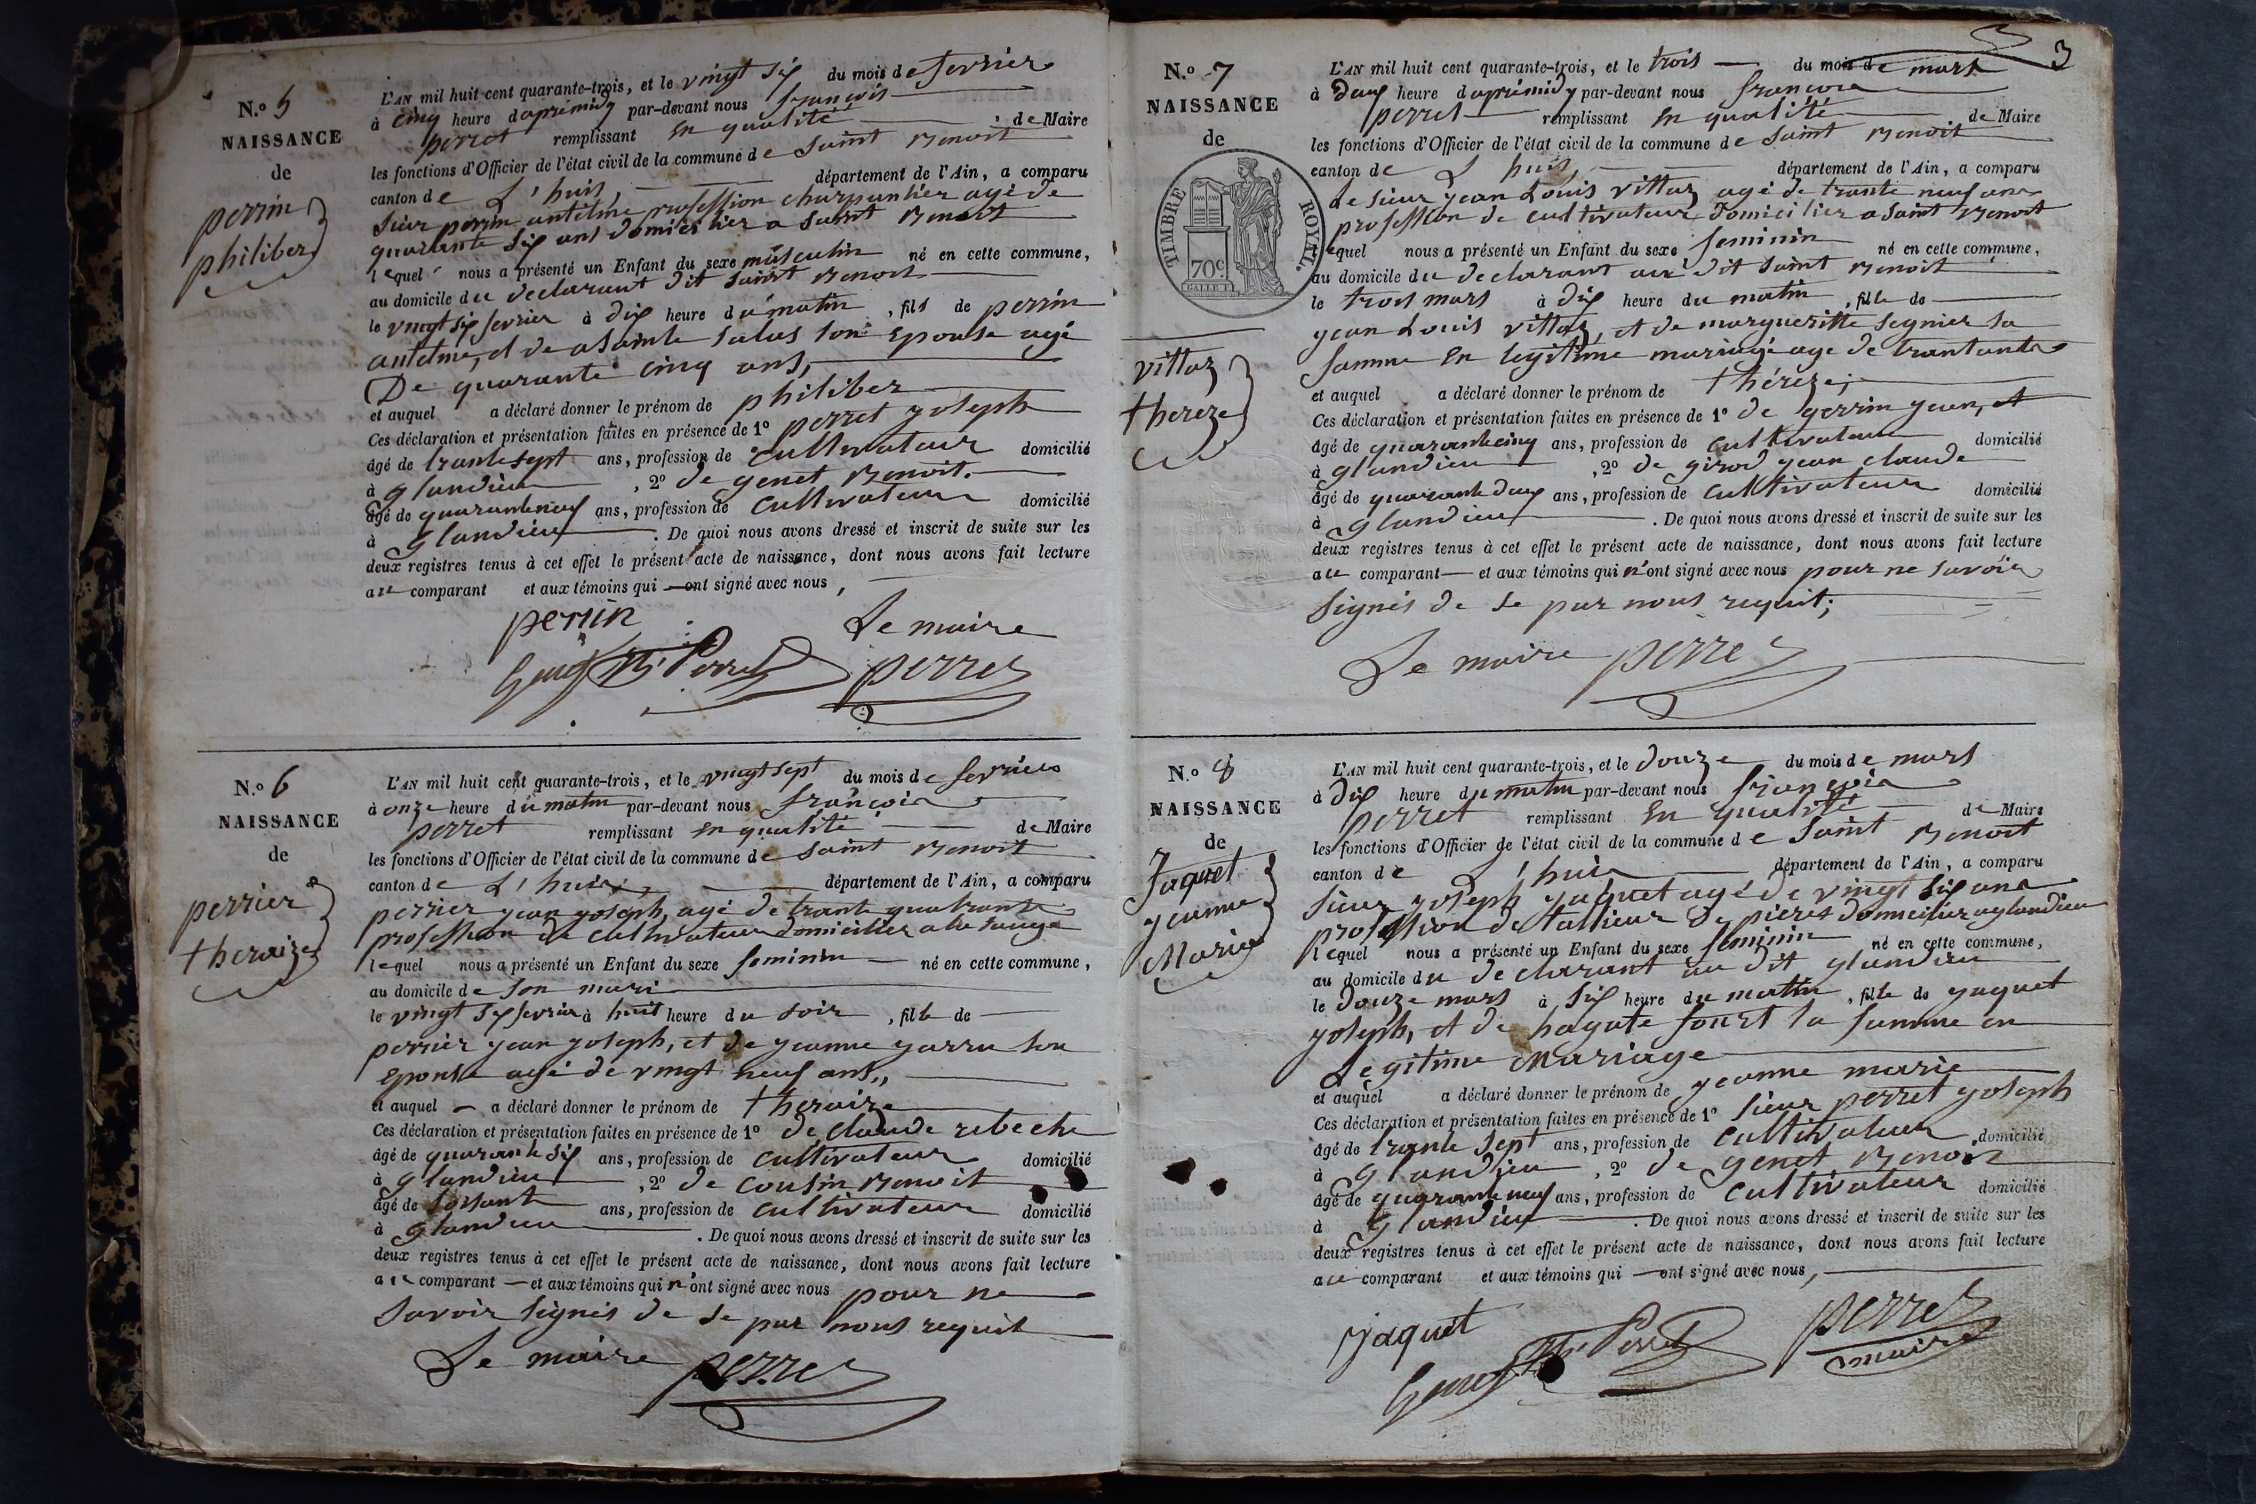 N.o 5
NAISSANCE
de
perrin
philiber
L'AN mil huit cent quarante-trois, et le vingt six du mois de fevrier
à cinq heure daprémidy par-devant nous françois
perret remplissant en qualité de Maire
les fonctions d'Officier de l'état civil de la commune de saint Benoit
canton de L'huis, département de l'Ain, a comparu
sieur perrin antelme profession charpantier agé de
quarante six ans domicilier a saint Benoit
lequel nous a présenté un Enfant du sexe masculin né en cette commune,
au domicile du declarant dit saint Benoit
le vingt six fevrier à dix heure du matin, fils de perrin
antelme, et de sa son epouse agé
De quarante cinq ans,
et auquel a déclaré donner le prénom de philiber
Ces déclaration et présentation faites en présence de 1o perret yoseph
âgé de trante sept ans, profession de cultivateur domicilié
à glandieu, 2o de genet Benoit.
âgé de quarante neuf ans, profession de cultivateur domicilié
à glandieu. De quoi nous avons dressé et inscrit de suite sur les
deux registres tenus à cet effet le présent acte de naissance, dont nous avons fait lecture
au comparant et aux témoins qui ont signé avec nous,
perrin Le maire
Genet Perret perret
N.o 6
NAISSANCE
de
perrier
theraize
L'AN mil huit cent quarante-trois, et le vingt sept du mois de fevrier
à onze heure du matin par-devant nous françois
perret remplissant en qualité de Maire
les fonctions d'Officier de l'état civil de la commune de saint Benoit
canton de L'huis, département de l'Ain, a comparu
perrier yean yoseph, agé de trante quatre ans
profession de cultivateur domicilier a
lequel nous a présenté un Enfant du sexe feminin né en cette commune,
au domicile de son mari
le vingt six fevrier à huit heure du soir, fille de
perrier yean yoseph, et de yeanne son
epouse agé de vingt neuf ans,,
et auquel a déclaré donner le prénom de theraize
Ces déclaration et présentation faites en présence de 1o de claude rebeche
âgé de quarante six ans, profession de cultivateur domicilié
à glandieu, 2o de cousin Benoit
âgé de soisant ans, profession de cultivateur domicilié
à glandieu. De quoi nous avons dressé et inscrit de suite sur les
deux registres tenus à cet effet le présent acte de naissance, dont nous avons fait lecture
au comparant et aux témoins qui n'ont signé avec nous pour ne
savoir signés de se par nous requit
Le maire perret
3
N.o 7
NAISSANCE
de
TIMBRE ROYAL.
70c.
vittoz
thereze
L'AN mil huit cent quarante-trois, et le trois du mois de mars
à daux heure daprémidy par-devant nous françois
perret remplissant en qualité de Maire
les fonctions d'Officier de l'état civil de la commune de saint Benoit
canton de L huis, département de l'Ain, a comparu
le sieur yean Louis vittoz agé de trante neuf ans
profession de cultivateur domicilier a saint Benoit
lequel nous a présenté un Enfant du sexe feminin né en cette commune,
au domicile du declarant au dit saint Benoit
le trois mars à dix heure du matin, fille de
yean Louis vittoz, et de margueritte segnier sa
famme en legitime mariage age de trantante
et auquel a déclaré donner le prénom de théreze;
Ces déclaration et présentation faites en présence de 1o de perrin yean, et
âgé de quarante cinq ans, profession de cultivateur domicilié
à glandieu, 2o de girod yean claude
âgé de quarante daux ans, profession de cultivateur domicilié
à glandieu. De quoi nous avons dressé et inscrit de suite sur les
deux registres tenus à cet effet le présent acte de naissance, dont nous avons fait lecture
au comparant et aux témoins qui n'ont signé avec nous pour ne savoir
signés de se par nous requit;
Le maire perret
N.o 8
NAISSANCE
de
Jaquet
yeanne
Marie
L'AN mil huit cent quarante-trois, et le douze du mois de mars
à dix heure du matin par-devant nous françois
perret remplissant en qualité de Maire
les fonctions d'Officier de l'état civil de la commune de saint Benoit
canton de l'huis département de l'Ain, a comparu
sieur yoseph yaquet agé de vingt six ans
profession de tallieur de pieres domicilier a glandieu
lequel nous a présenté un Enfant du sexe feminin né en cette commune,
au domicile du declarant au dit glandieu
le douze mars à six heure du matin, fille de yaquet
yoseph, et de hagate la famme en
Legitime Mariage
et auquel a déclaré donner le prénom de yeanne marie
Ces déclaration et présentation faites en présence de 1o sieur perret yoseph
âgé de trante sept ans, profession de cultivateur domicilié
à glandieu, 2o de genet Benoit
âgé de quarante neuf ans, profession de cultivateur domicilié
à glandieu. De quoi nous avons dressé et inscrit de suite sur les
deux registres tenus à cet effet le présent acte de naissance, dont nous avons fait lecture
au comparant et aux témoins qui ont signé avec nous,
Jaquet perret
Genet Perret maire